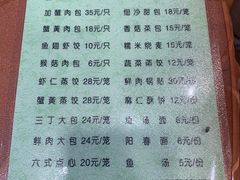 加蟹肉包 35元/只 细沙甜包 18元/笼
蟹黄肉包 18元/只 香菇菜包 15元/笼
鱼翅虾饺 10元/只 糯米烧麦 15元/笼
猴菇肉包 6元/只 蔬菜蒸饺 12元/笼
虾仁蒸饺 28元/笼 鲜肉锅贴 30元/
蟹黄蒸饺 28元/笼 麻仁酥饼 12元/
三丁大包 24元/笼 馄饨面 8元/份
鲜肉大包 24元/笼 阳春面 6元/份
六式点心 20元/笼 鱼汤 5元/份